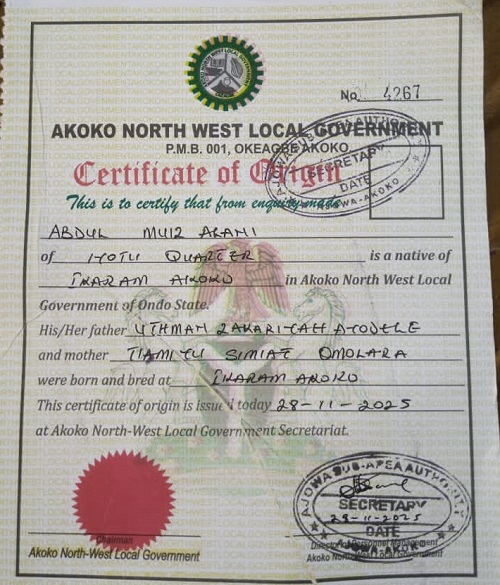 No. 4267
AKOKO NORTH WEST LOCAL GOVERNMENT
P.M.B. 001, OKEAGBE AKOKO
Certificate of Origin
This is to certify that from enquiry made
AJOWA SUB-AREA AUTHORITY
SECRETARY
DATE
AJOWA-AKOKO
ABDUL MUIZ ALANI
of IYOTU QUARTER is a native of
IKARAM AKOKO in Akoko North West Local
Government of Ondo State.
His/Her father UTHMAN ZAKARIYAH AYODELE
and mother TIAMIYU SIMIAT OMOLARA
were born and bred at IKARAM AKOKO
This certificate of origin is issued today 28-11-2025
at Akoko North-West Local Government Secretariat.
AJOWA SUB-AREA AUTHORITY
SECRETARY
28-11-2025
DATE
AJOWA-AKOKO
Chairman
Akoko North-West Local Government
Director of Personnel Management
Akoko North-West Local Government